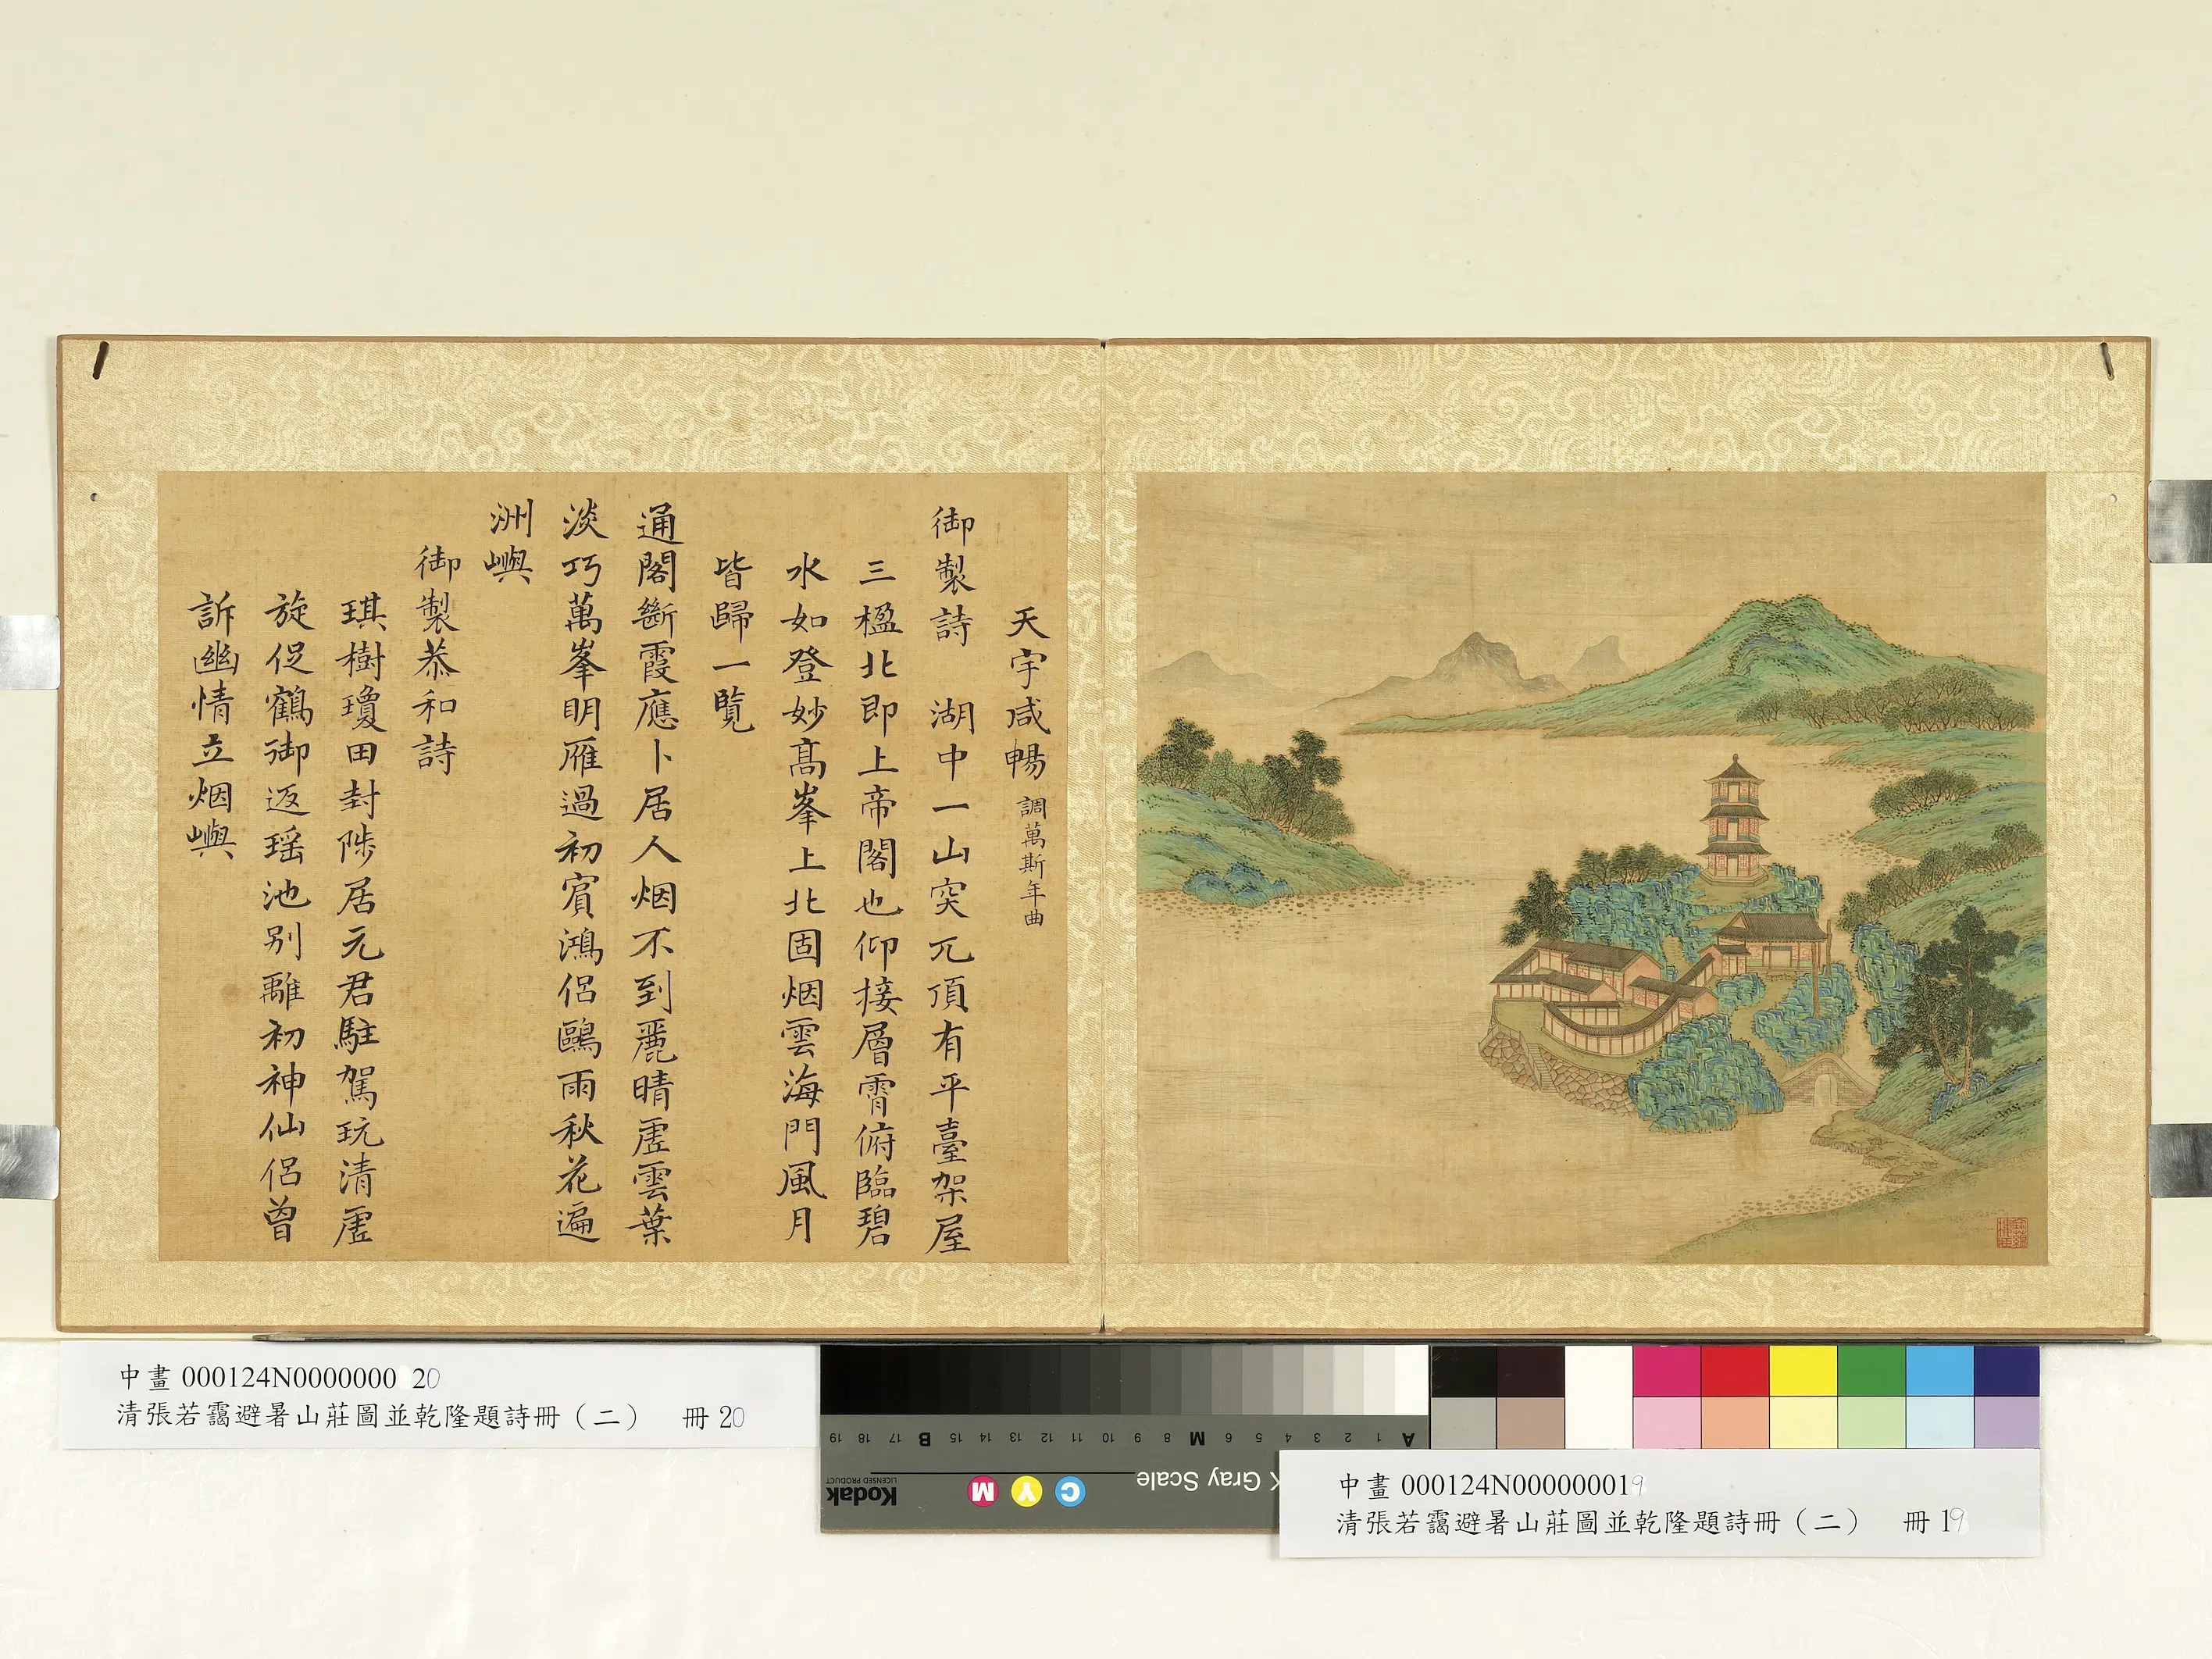 天宇咸暢 調萬斯年曲
御製詩 湖中一山突兀頂有平臺架屋
三楹北即上帝閣也仰接層霄俯臨碧
水如登妙高峯上北固烟雲海門風月
皆歸一覽
通閣斷霞應卜居人烟不到麗晴虛雲葉
淡巧萬峯明雁過初賓鴻侶鷗雨秋花遍
洲嶼
御製恭和詩
琪樹瓊田封陟居元君駐駕玩清虛
旋促鶴御返瑶池別離初神仙侶曾
訴幽情立烟嶼
中畫 000124N0000000 20
清張若靄避暑山莊圖並乾隆題詩冊（二） 冊 20
19 18 17 B 15 14 13 12 11 10 9 8 M 6 5 4 3 2 1 A
Kodak
LICENSED PRODUCT
M Y C
Gray Scale
中畫 000124N0000000019
清張若靄避暑山莊圖並乾隆題詩冊（二） 冊 19